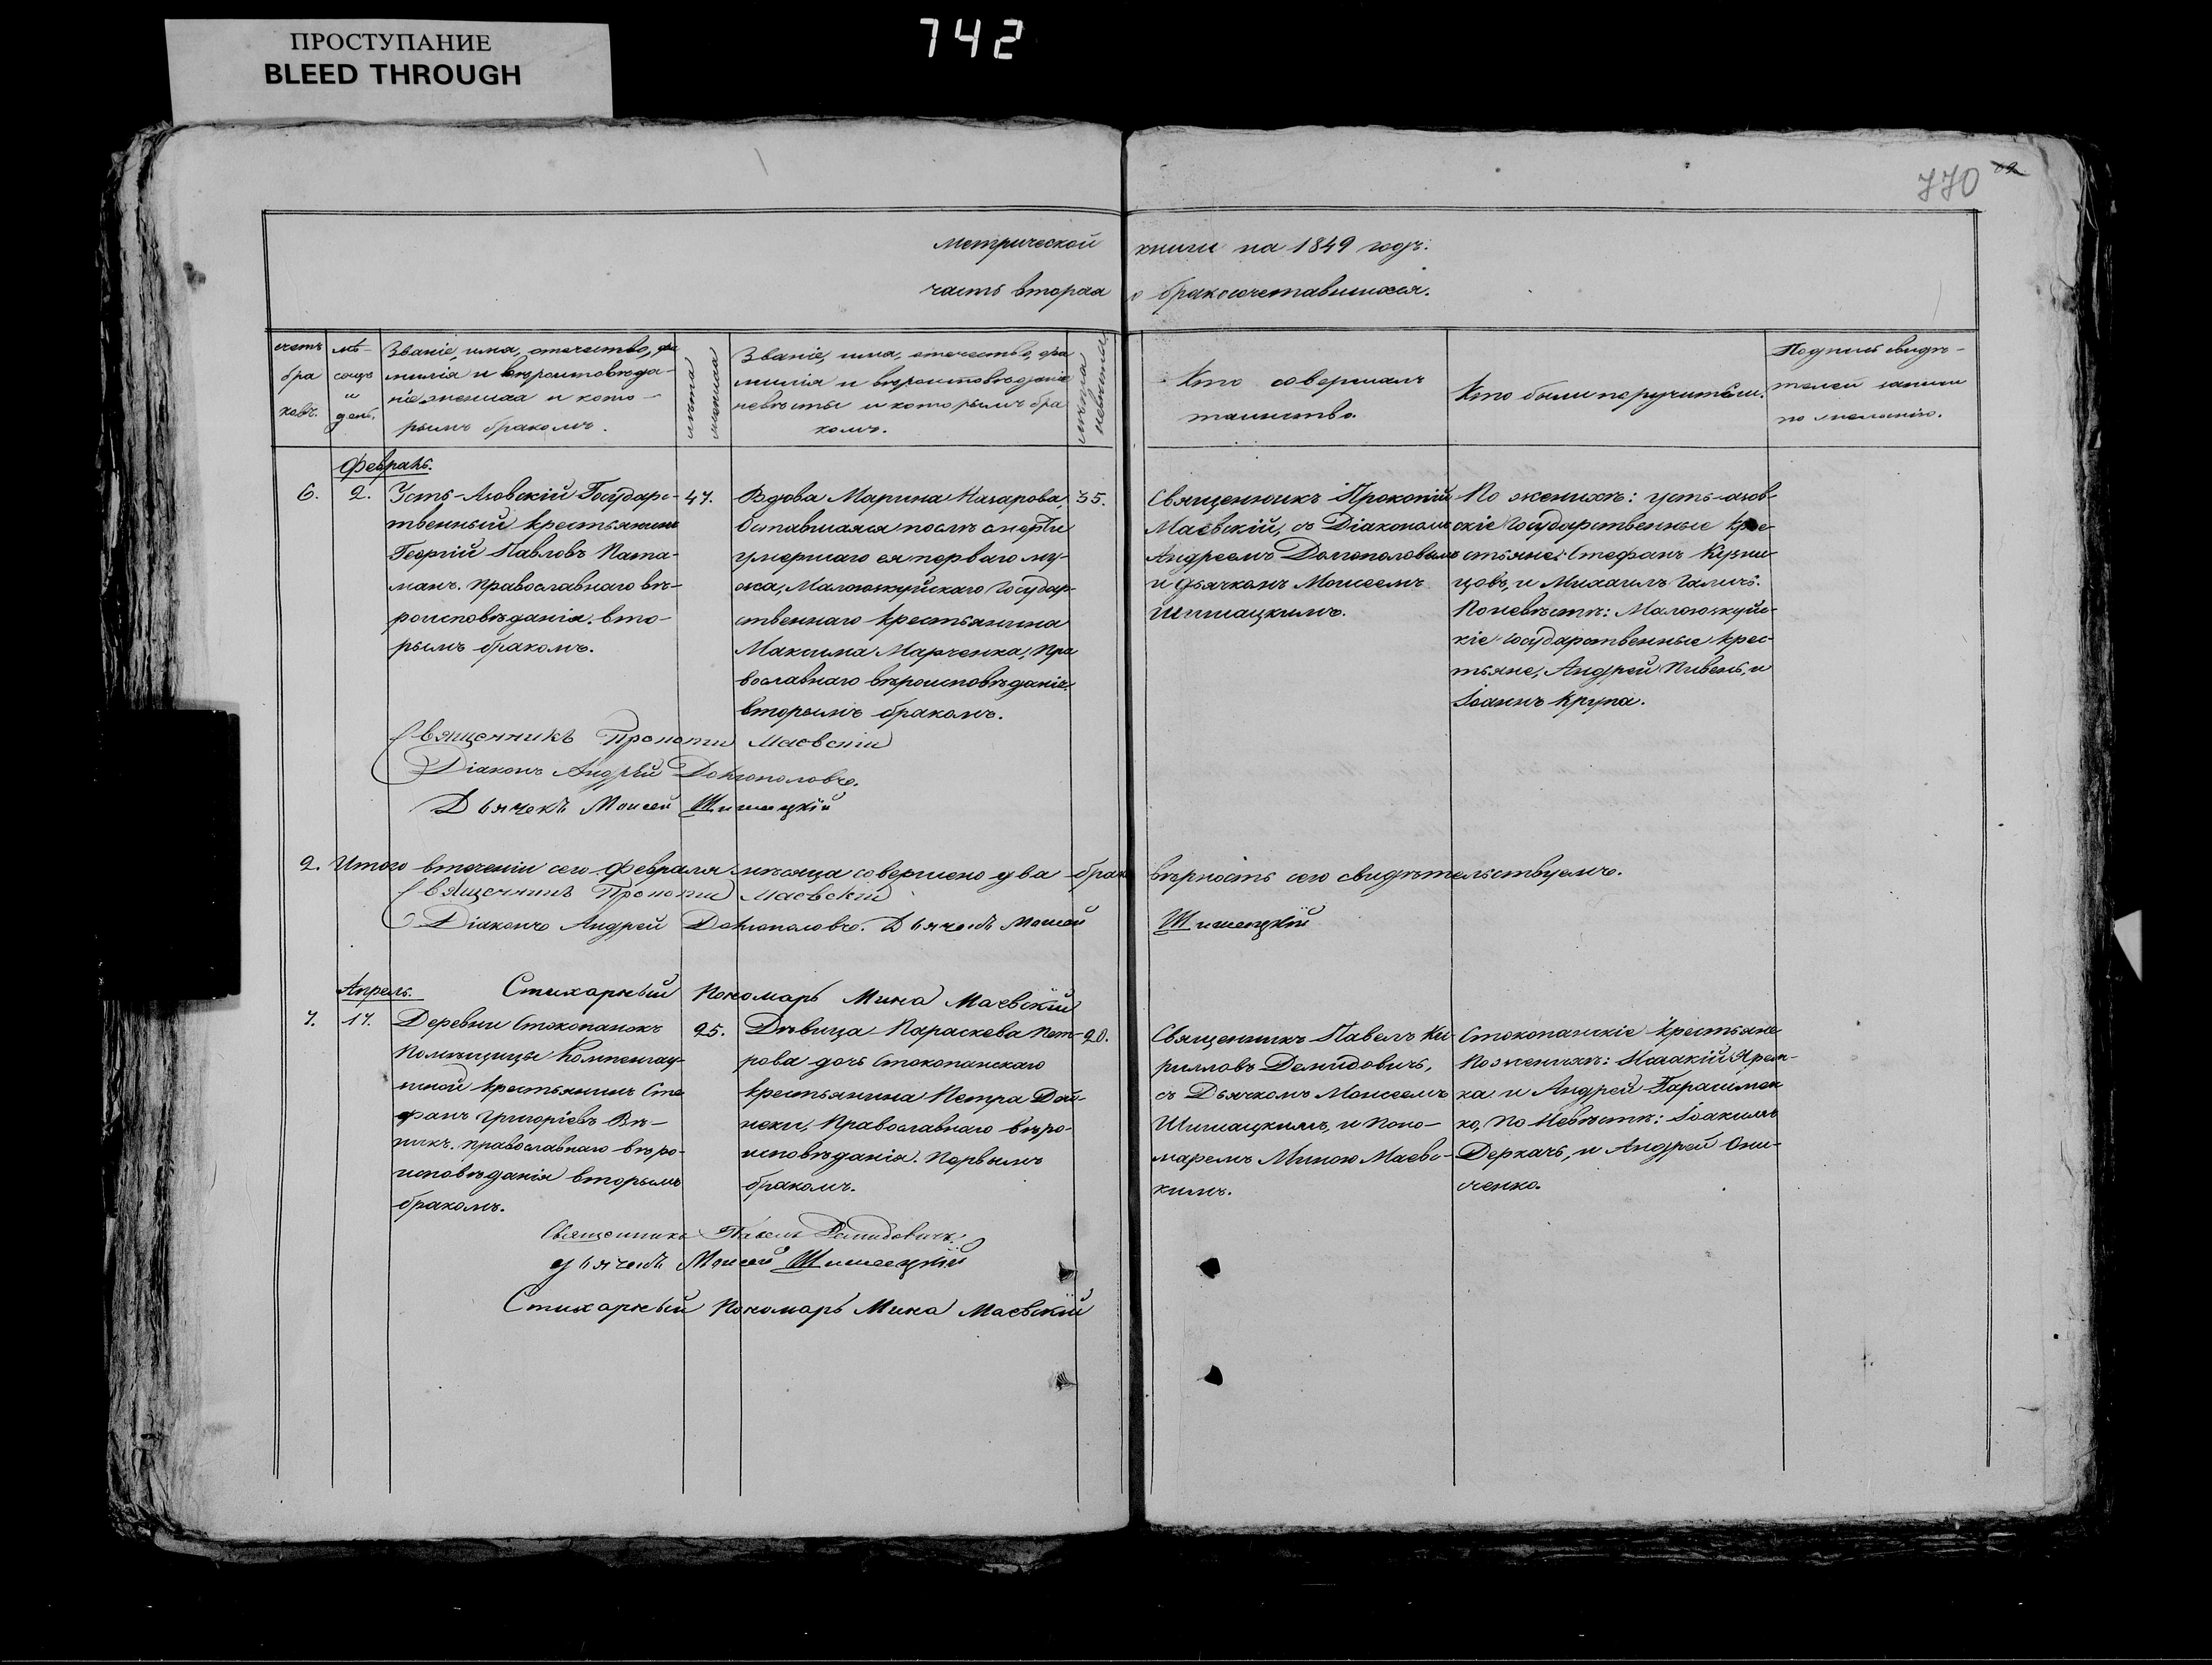 ПРОСТУПАНИЕ
BLEED THROUGH
742
770
метрической книги на 1849 годъ.
часть вторая о бракосочетавшихся.
счетъ
бра
ковъ.
мѣ-
сяцъ
и
день.
Званіе, имя, отечество, фа
милія и вѣроисповѣда-
ніе жениха и кото-
рымъ бракомъ.
лѣта
жениха
Званіе, имя, отечество, фа
милія и вѣроисповѣданіе
невѣсты и которымъ бра
комъ.
лѣта
невѣсты
Кто совершалъ
таинство.
Кто были поручители.
Подпись свидѣ-
телей записи
по желанію.
Февраль.
6.
2.
Усть-Азовскій Государс-
твенный крестьянинъ
Георгій Павловъ Пата-
манъ. Православнаго вѣ-
роисповѣданія. вто-
рымъ бракомъ.
47.
Вдова Марина Назарова,
Оставшаяся послѣ смерти
умершаго ея перваго му-
жа, Государ-
ственнаго крестьянина
Максима Марченка, Пра
вославнаго вѣроисповѣданіе.
вторымъ бракомъ.
35.
Священникъ Прокопій
Маевскій, съ Діакономъ
Андреемъ Долгополовымъ
и дьячкомъ Моисеемъ
Шишацкимъ.
По женихѣ: усть-азов-
скіе Государственные кре-
стьяне: Стефанъ Кузни-
цовъ, и Михаилъ Галичъ.
По невѣстѣ:
кіе Государственные крес-
тьяне, Андрей Пивень, и
Іоаннъ Крупа.
Священникъ Прокопій Маевскій
Діаконъ Андрей Долгополовъ.
Дьячекъ Моисей Шишацкій
2. Итого втеченіи сего Февраля мѣсяца совершено два брак вѣрность сего свидѣтельствуемъ.
Священникъ Прокопій Маевскій
Діаконъ Андрей Долгополовъ. Дьячекъ Моисей Шишацкій
Стихарный Пономарь Мина Маевскій
Апрель.
7.
17.
Деревни Стокопанокъ
Помѣщицы
крестьянинъ Сте
фанъ Григоріевъ Вѣ-
никъ. православнаго вѣро-
исповѣданія вторымъ
бракомъ.
25.
Дѣвица Параскева Пет-
рова дочь Стокопанскаго
крестьянина Петра Дой-
неки, Православнаго вѣро-
исповѣданія. Первымъ
бракомъ.
20.
Священникъ Павелъ Ки-
рилловъ Демидовичъ,
съ Дьячкомъ Моисеемъ
Шишацкимъ, и Поно-
маремъ Миною Маевс-
кимъ.
Стокопанскіе крестьяне
По женихѣ: Исаакій Ярем-
ка и Андрей Гарасимен
ко, По Невѣстѣ: Іоакимъ
Деркачъ, и Андрей Они-
щенко.
Священникъ Павелъ Демидовичъ.
дьячекъ Моисей Шишацкій
Стихарный Пономарь Мина Маевскій